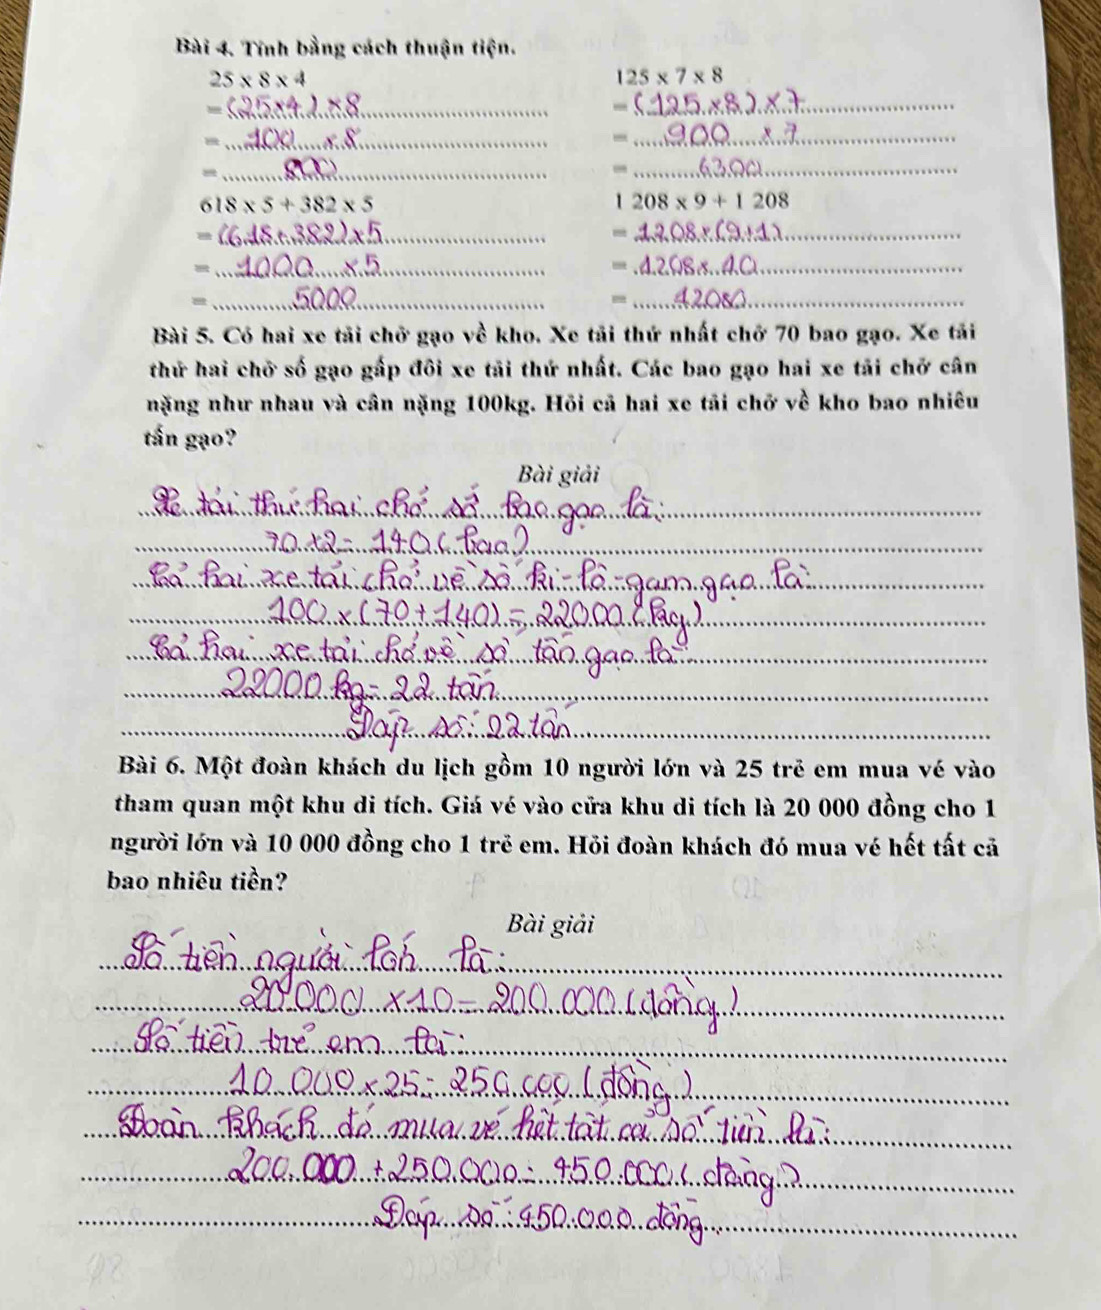 Bài 4. Tính bằng cách thuận tiện.
25 × 8 × 4
= (25×4) × 8
= 100 × 8
= 800
125 × 7 × 8
= (125 × 8) × 7
= 900 × 7
= 6300
618 × 5 + 382 × 5
= (618 + 382) × 5
= 1000 × 5
= 5000
1 208 × 9 + 1 208
= 1208 × (9+1)
= 1208 × 10
= 12080
Bài 5. Có hai xe tải chở gạo về kho. Xe tải thứ nhất chở 70 bao gạo. Xe tải
thứ hai chở số gạo gấp đôi xe tải thứ nhất. Các bao gạo hai xe tải chở cân
nặng như nhau và cân nặng 100kg. Hỏi cả hai xe tải chở về kho bao nhiêu
tấn gạo?
Bài giải
Xe tải thứ hai chở số bao gạo là:
70 × 2 = 140 (bao)
Cả hai xe tải chở về số ki-lô-gam gạo là:
100 × (70 + 140) = 22000 (kg)
Cả hai xe tải chở về số tấn gạo là:
22000 kg = 22 tấn
Đáp số: 22 tấn
Bài 6. Một đoàn khách du lịch gồm 10 người lớn và 25 trẻ em mua vé vào
tham quan một khu di tích. Giá vé vào cửa khu di tích là 20 000 đồng cho 1
người lớn và 10 000 đồng cho 1 trẻ em. Hỏi đoàn khách đó mua vé hết tất cả
bao nhiêu tiền?
Bài giải
Số tiền người lớn là:
20.000 × 10 = 200.000 (đồng)
Số tiền trẻ em là:
10.000 × 25 = 250.000 (đồng)
Đoàn khách đó mua vé hết tất cả số tiền là:
200.000 + 250.000 = 450.000 (đồng)
Đáp số: 450.000 đồng